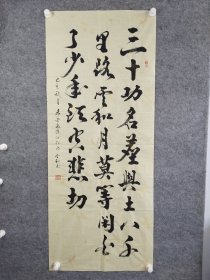 三十功名塵與土八千
里路雲和月莫等閑白
了少年頭空悲切